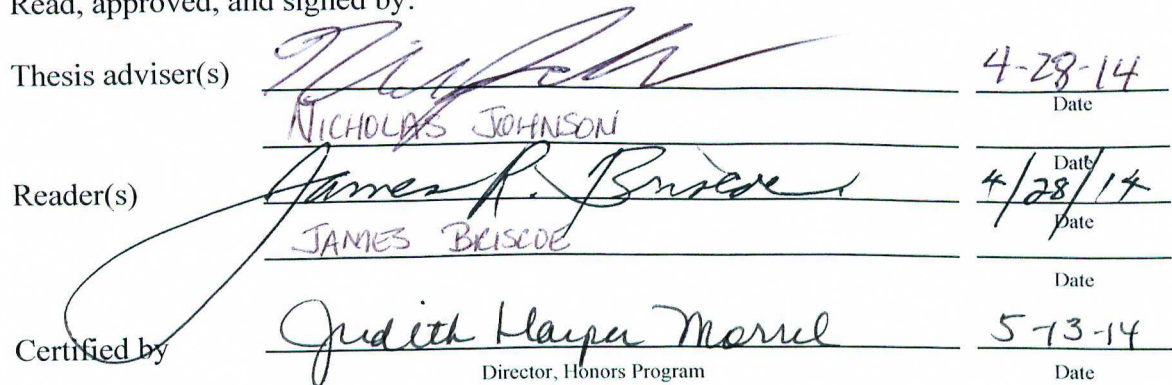 Read, approved, and signed by:
Thesis adviser(s) 4-28-14
Date
NICHOLAS JOHNSON
Date
Reader(s) James R. Briscoe 4/28/14
Date
JAMES BRISCOE
Date
Certified by Judith Harper Morrel 5-13-14
Director, Honors Program Date